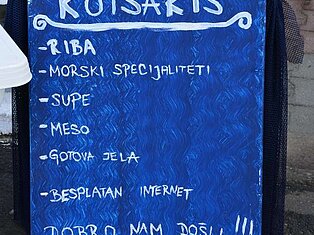 KOTSAKIS
-RIBA
-MORSKI SPECIJALITETI
-SUPE
-MESO
-GOTOVA JELA
-BESPLATAN INTERNET
DOBRO NAM DOŠLI !!!